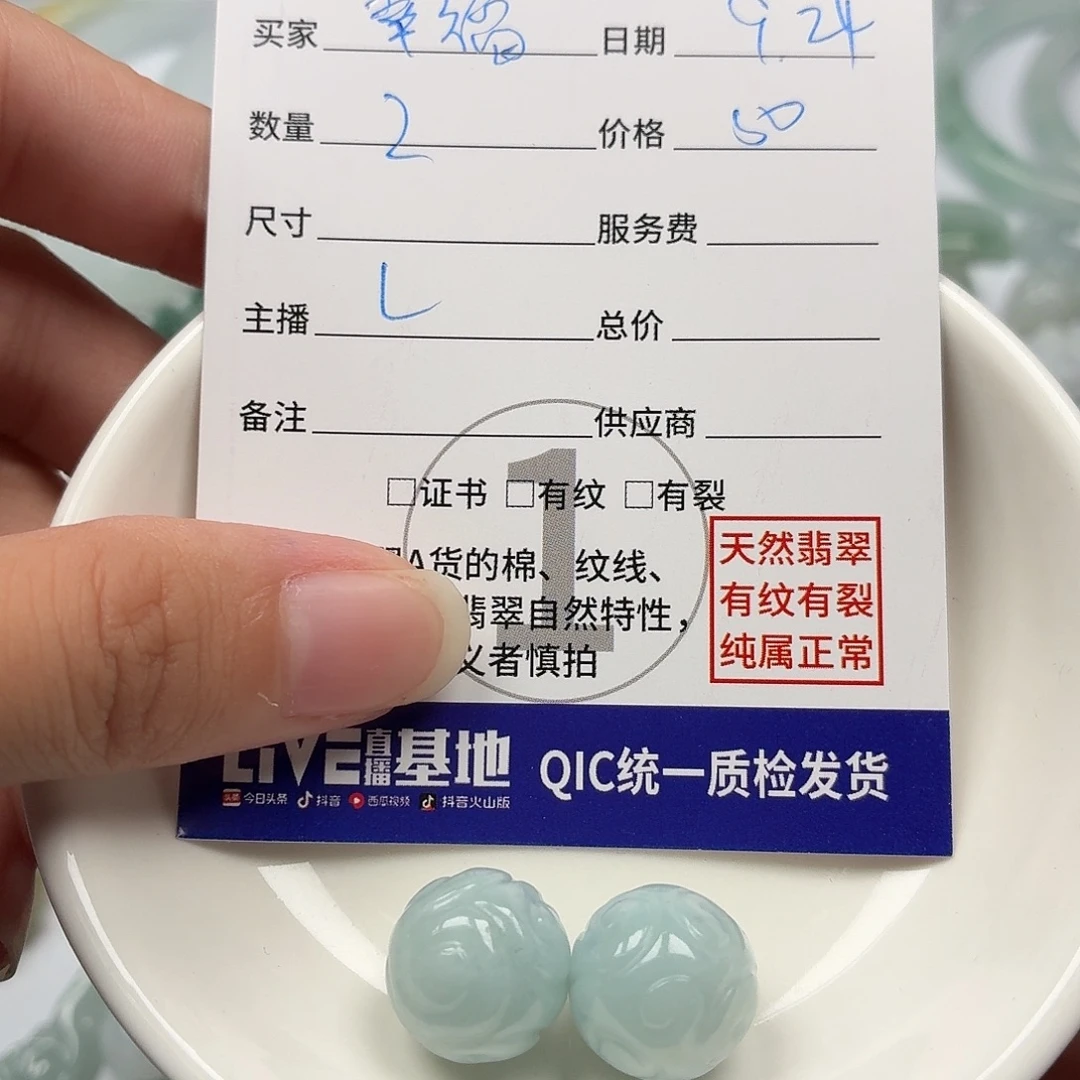 买家 幸福 日期 9.24
数量 2 价格 50
尺寸 服务费
主播 L 总价
备注 供应商
□证书 □有纹 □有裂
A货的棉、纹线、
翡翠自然特性，
义者慎拍
1
天然翡翠
有纹有裂
纯属正常
LIVE直播基地 QIC统一质检发货
今日头条 抖音 西瓜视频 抖音火山版